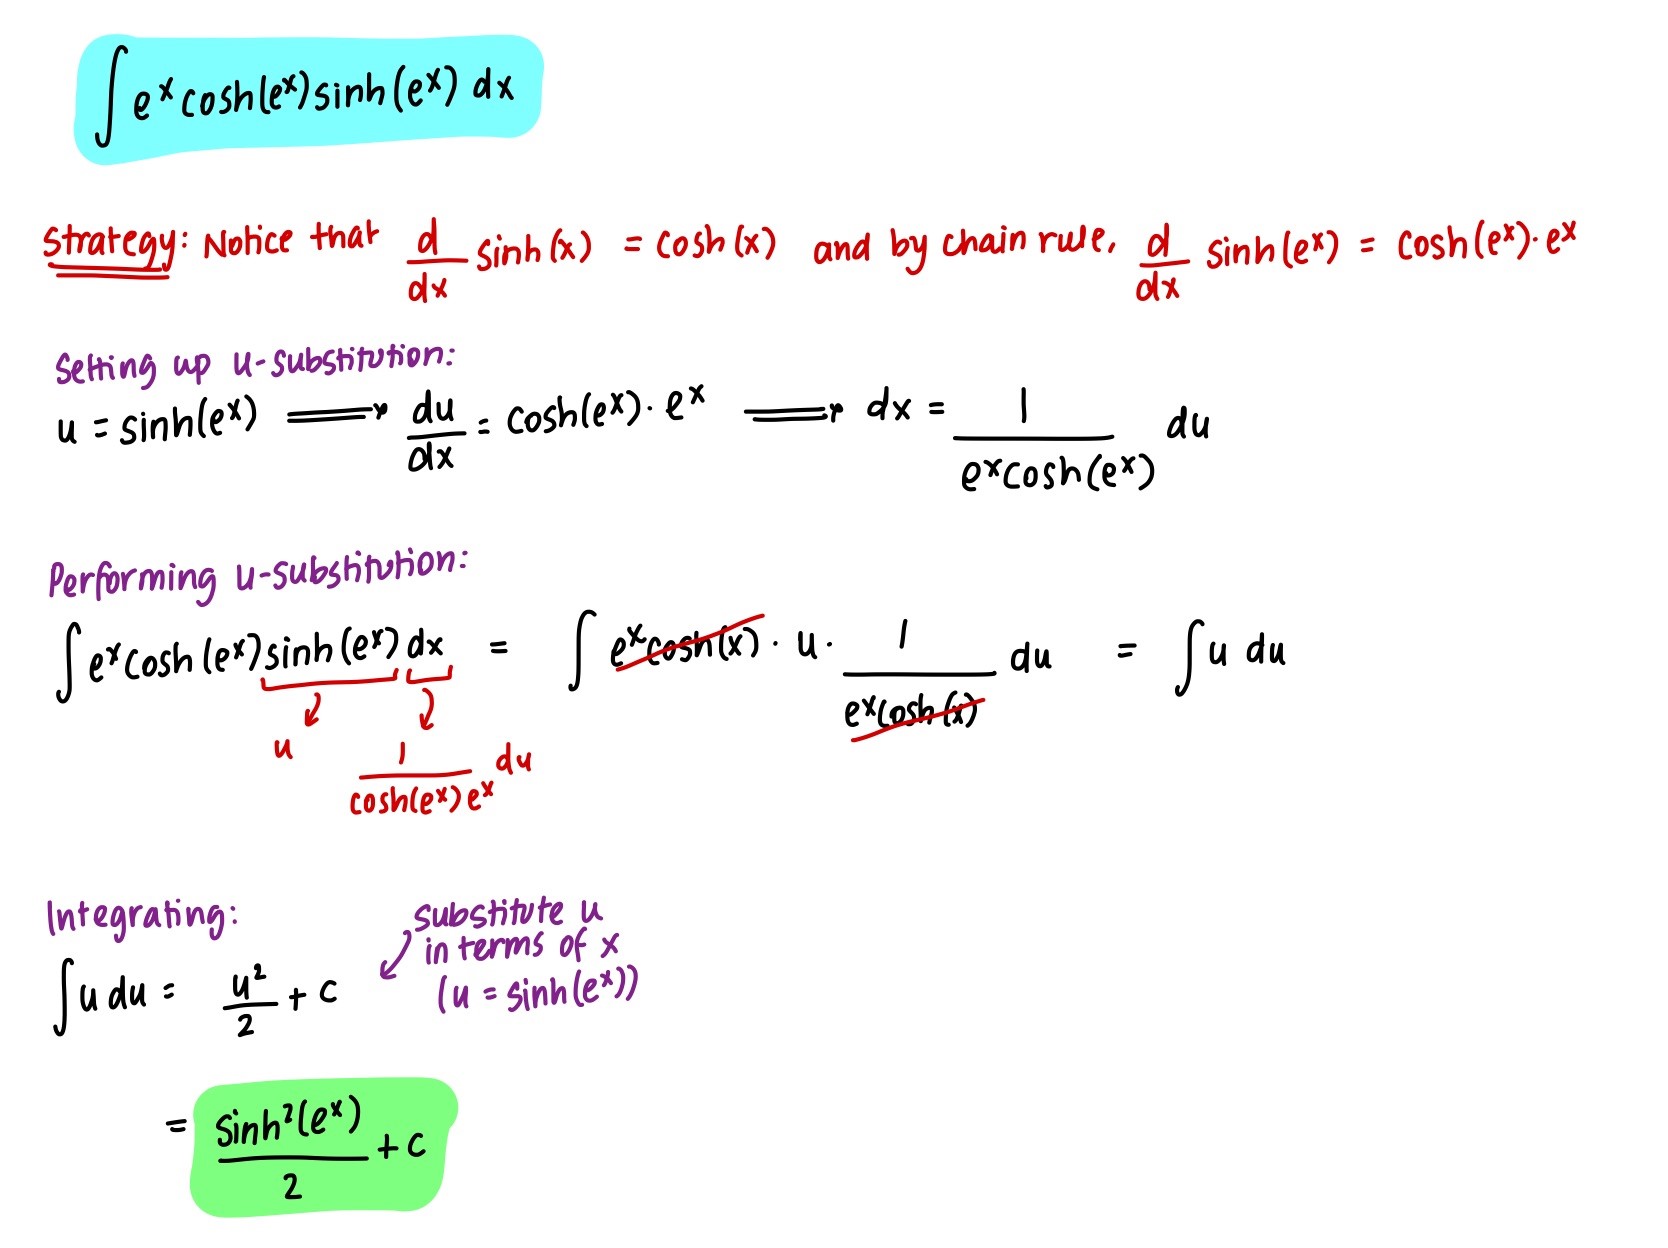 ∫ e^x cosh(e^x) sinh(e^x) dx
Strategy: Notice that d/dx sinh(x) = cosh(x) and by chain rule, d/dx sinh(e^x) = cosh(e^x) · e^x
Setting up u-substitution:
u = sinh(e^x) ⟹ du/dx = cosh(e^x) · e^x ⟹ dx = 1/(e^x cosh(e^x)) du
Performing u-substitution:
∫ e^x cosh(e^x) sinh(e^x) dx = ∫ e^x cosh(x) · u · 1/(e^x cosh(x)) du = ∫ u du
u
1/(cosh(e^x) e^x) du
Integrating:
substitute u
in terms of x
(u = sinh(e^x))
∫ u du = u²/2 + c
= sinh²(e^x)/2 + c